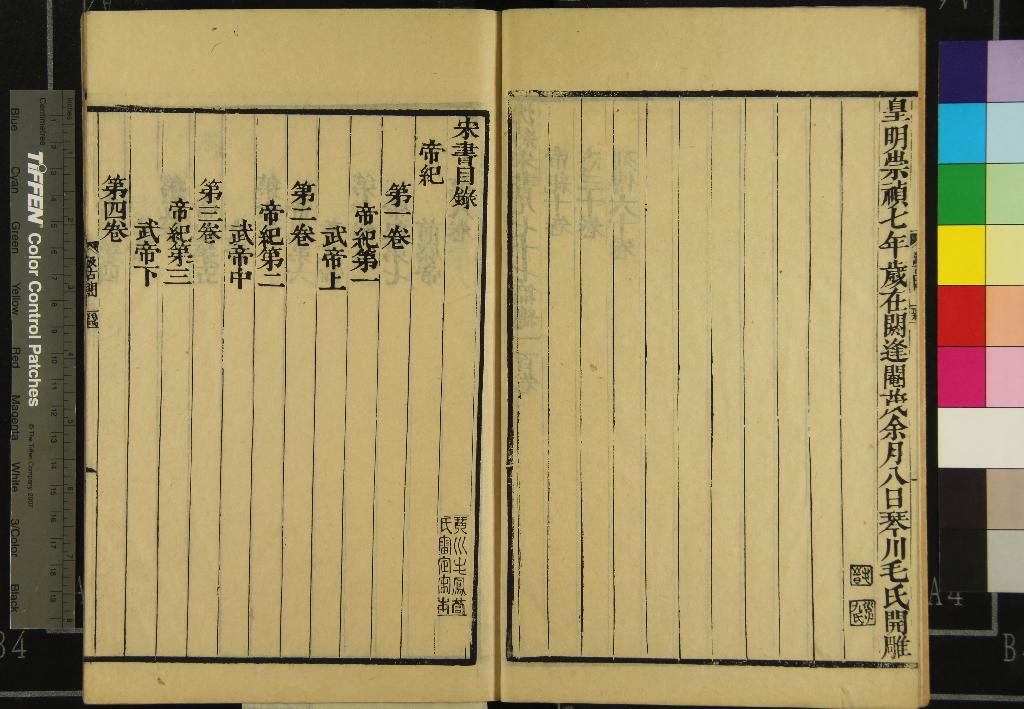 皇明崇禎七年歲在閼逢閹茂余月八日琴川毛氏開雕
宋書目錄
琴川毛鳳苞
氏審定宋本
帝紀
第一卷
帝紀第一
武帝上
第二卷
帝紀第二
武帝中
第三卷
帝紀第三
武帝下
第四卷
汲古閣
Inches
Centimetres
TIFFEN Color Control Patches
© The Tiffen Company, 2007
Blue
Cyan
Green
Yellow
Red
Magenta
White
3/Color
Black
A4